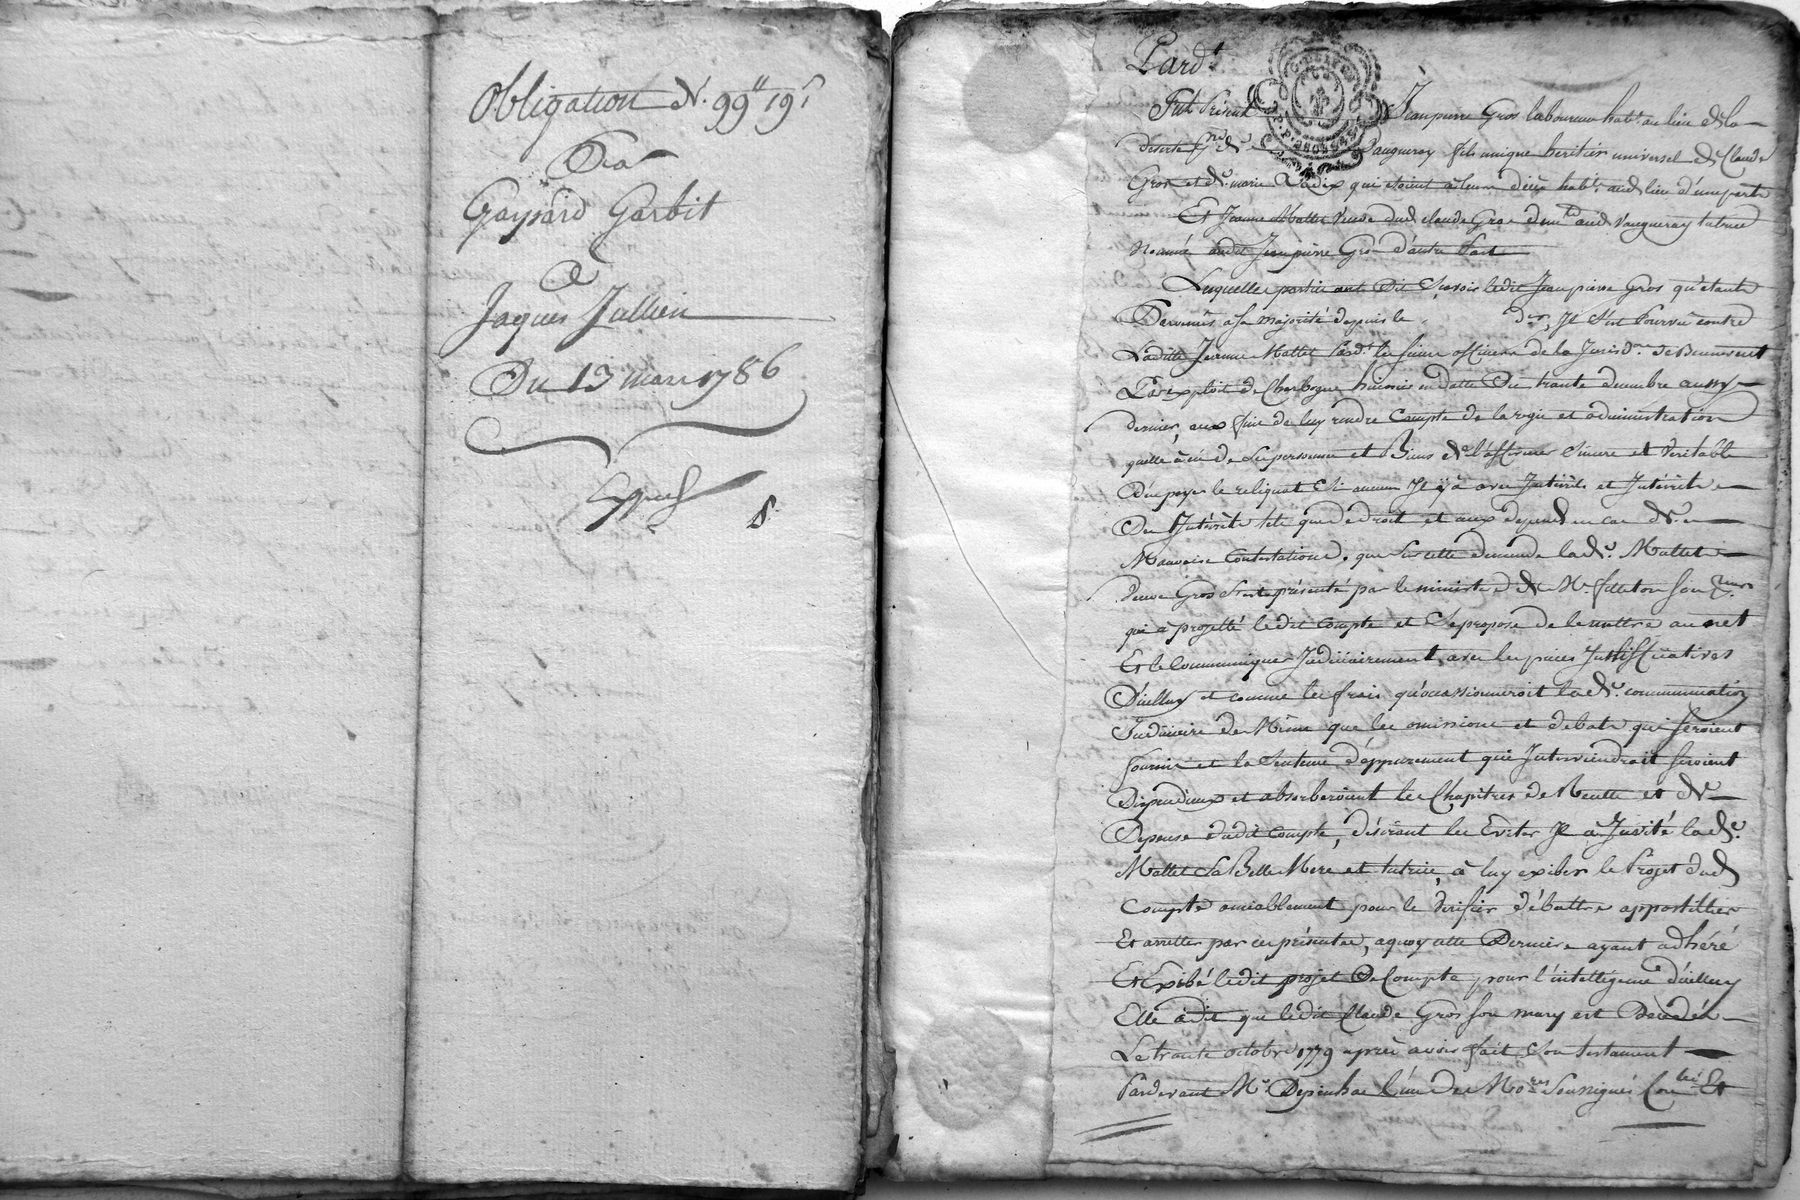 Obligation N. 99ᵗᵗ 19ˢ
Dea
Gaspard Garbit
a
Jaques Jullien
Du 13 mars 1786
8
Pardᵗ
Fut Présent Jeanpierre Gros laboureur habᵗ. au lieu de la
deserte psse de Vaugneray fils unique heritier universel de Claude
Gros et de. marie qui etoient à leurs décès habᵗˢ. aud. lieu d'une part
Et Jeanne Mallet Veuve dud. claude Gros demᵗᵉ aud. Vaugneray tutrice
Nommée audit Jeanpierre Gros d'autre Part
Lesquelles parties ont Dit Sçavoir ledit Jeanpierre Gros qu'etant
Parvenus a sa majorité depuis le dᵉʳ, Il s'est Pourvû contre
Laditte Jeanne Mallet Pardᵗ les sieurs officiers de la Jurisdᵒⁿ de
Par exploit de huissier en datte Du trente decembre aussy
dernier, aux fins de luy rendre Compte de la regie et administration
quelle à eu de Sa personne et Biens de l'affirmer Sincere et Veritable
D'en payer le reliquat Si aucun Il y à avec Intérêts et Intérêts
Des Intérêts tels que de droit et aux depens en cas de
Mauvaise Contestations. que Sur cette demande lade. Mallet
Veuve Gros S'est présenté par le ministere de Mᵉ. son
qui à projetté ledit Compte et Se propose de le mettre au net
Et le Communiquer Judiciairement, avec les pieces Justifficatives
D'icelluy et comme les frais qu'occassionneroit lade. communication
Judiciaire de Même que les omissions et debats qui seroient
fournis et la Sentence d'appurement qui Interviendroit seroient
Dispendieux et absorberoient les Chapitres de Recette et de
Depense dudit Compte, désirant les Eviter Il à Invité lade.
Mallet Sa Belle Mere et tutrice, à luy exiber le Projet dud.
Compte amiablement pour le Verifier débattre appostiller
Et arretter par ces présentes, a quoy cette Derniere ayant adhéré
Et Exibé ledit projet De Compte pour l'intelligence d'icelluy
Elle à dit que ledit Claude Gros son mary est Décédé
Le trente octobre 1779 après avoir fait Son testament
Pardevant Mᵉ l'un des Noʳᵉˢ Soussignés Conˡᵉ Et